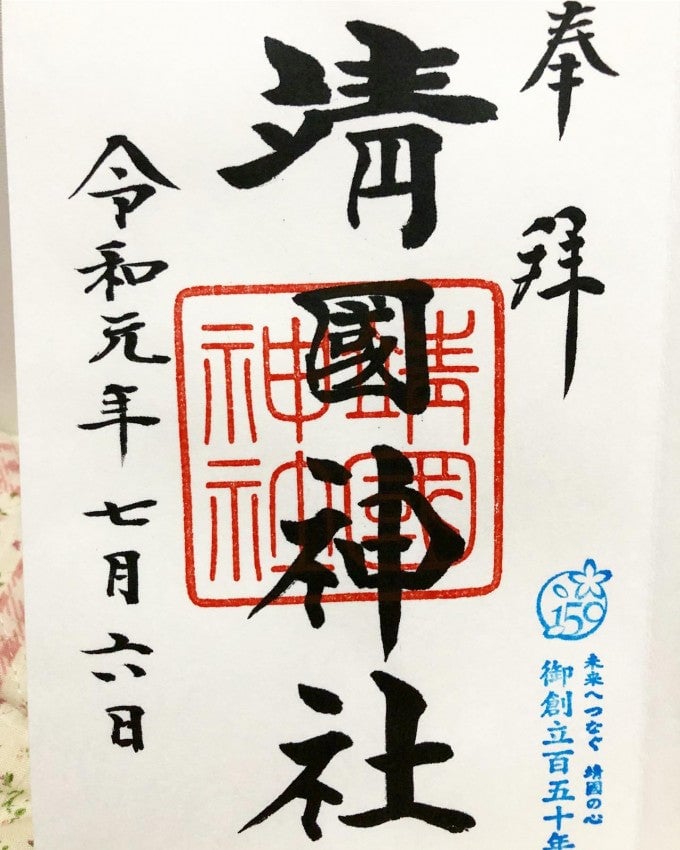 奉拝
150
未来へつなぐ 靖國の心
御創立百五十年
靖國神社
靖國
神社
令和元年七月六日